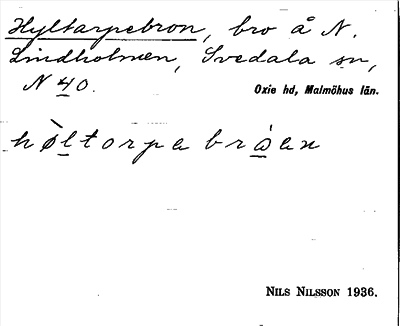 Hyltarpebron, bro å N.
Lindholmen, Svedala sn,
N 40.
Oxie hd, Malmöhus län.
hø̀ltorpabråen
NILS NILSSON 1936.